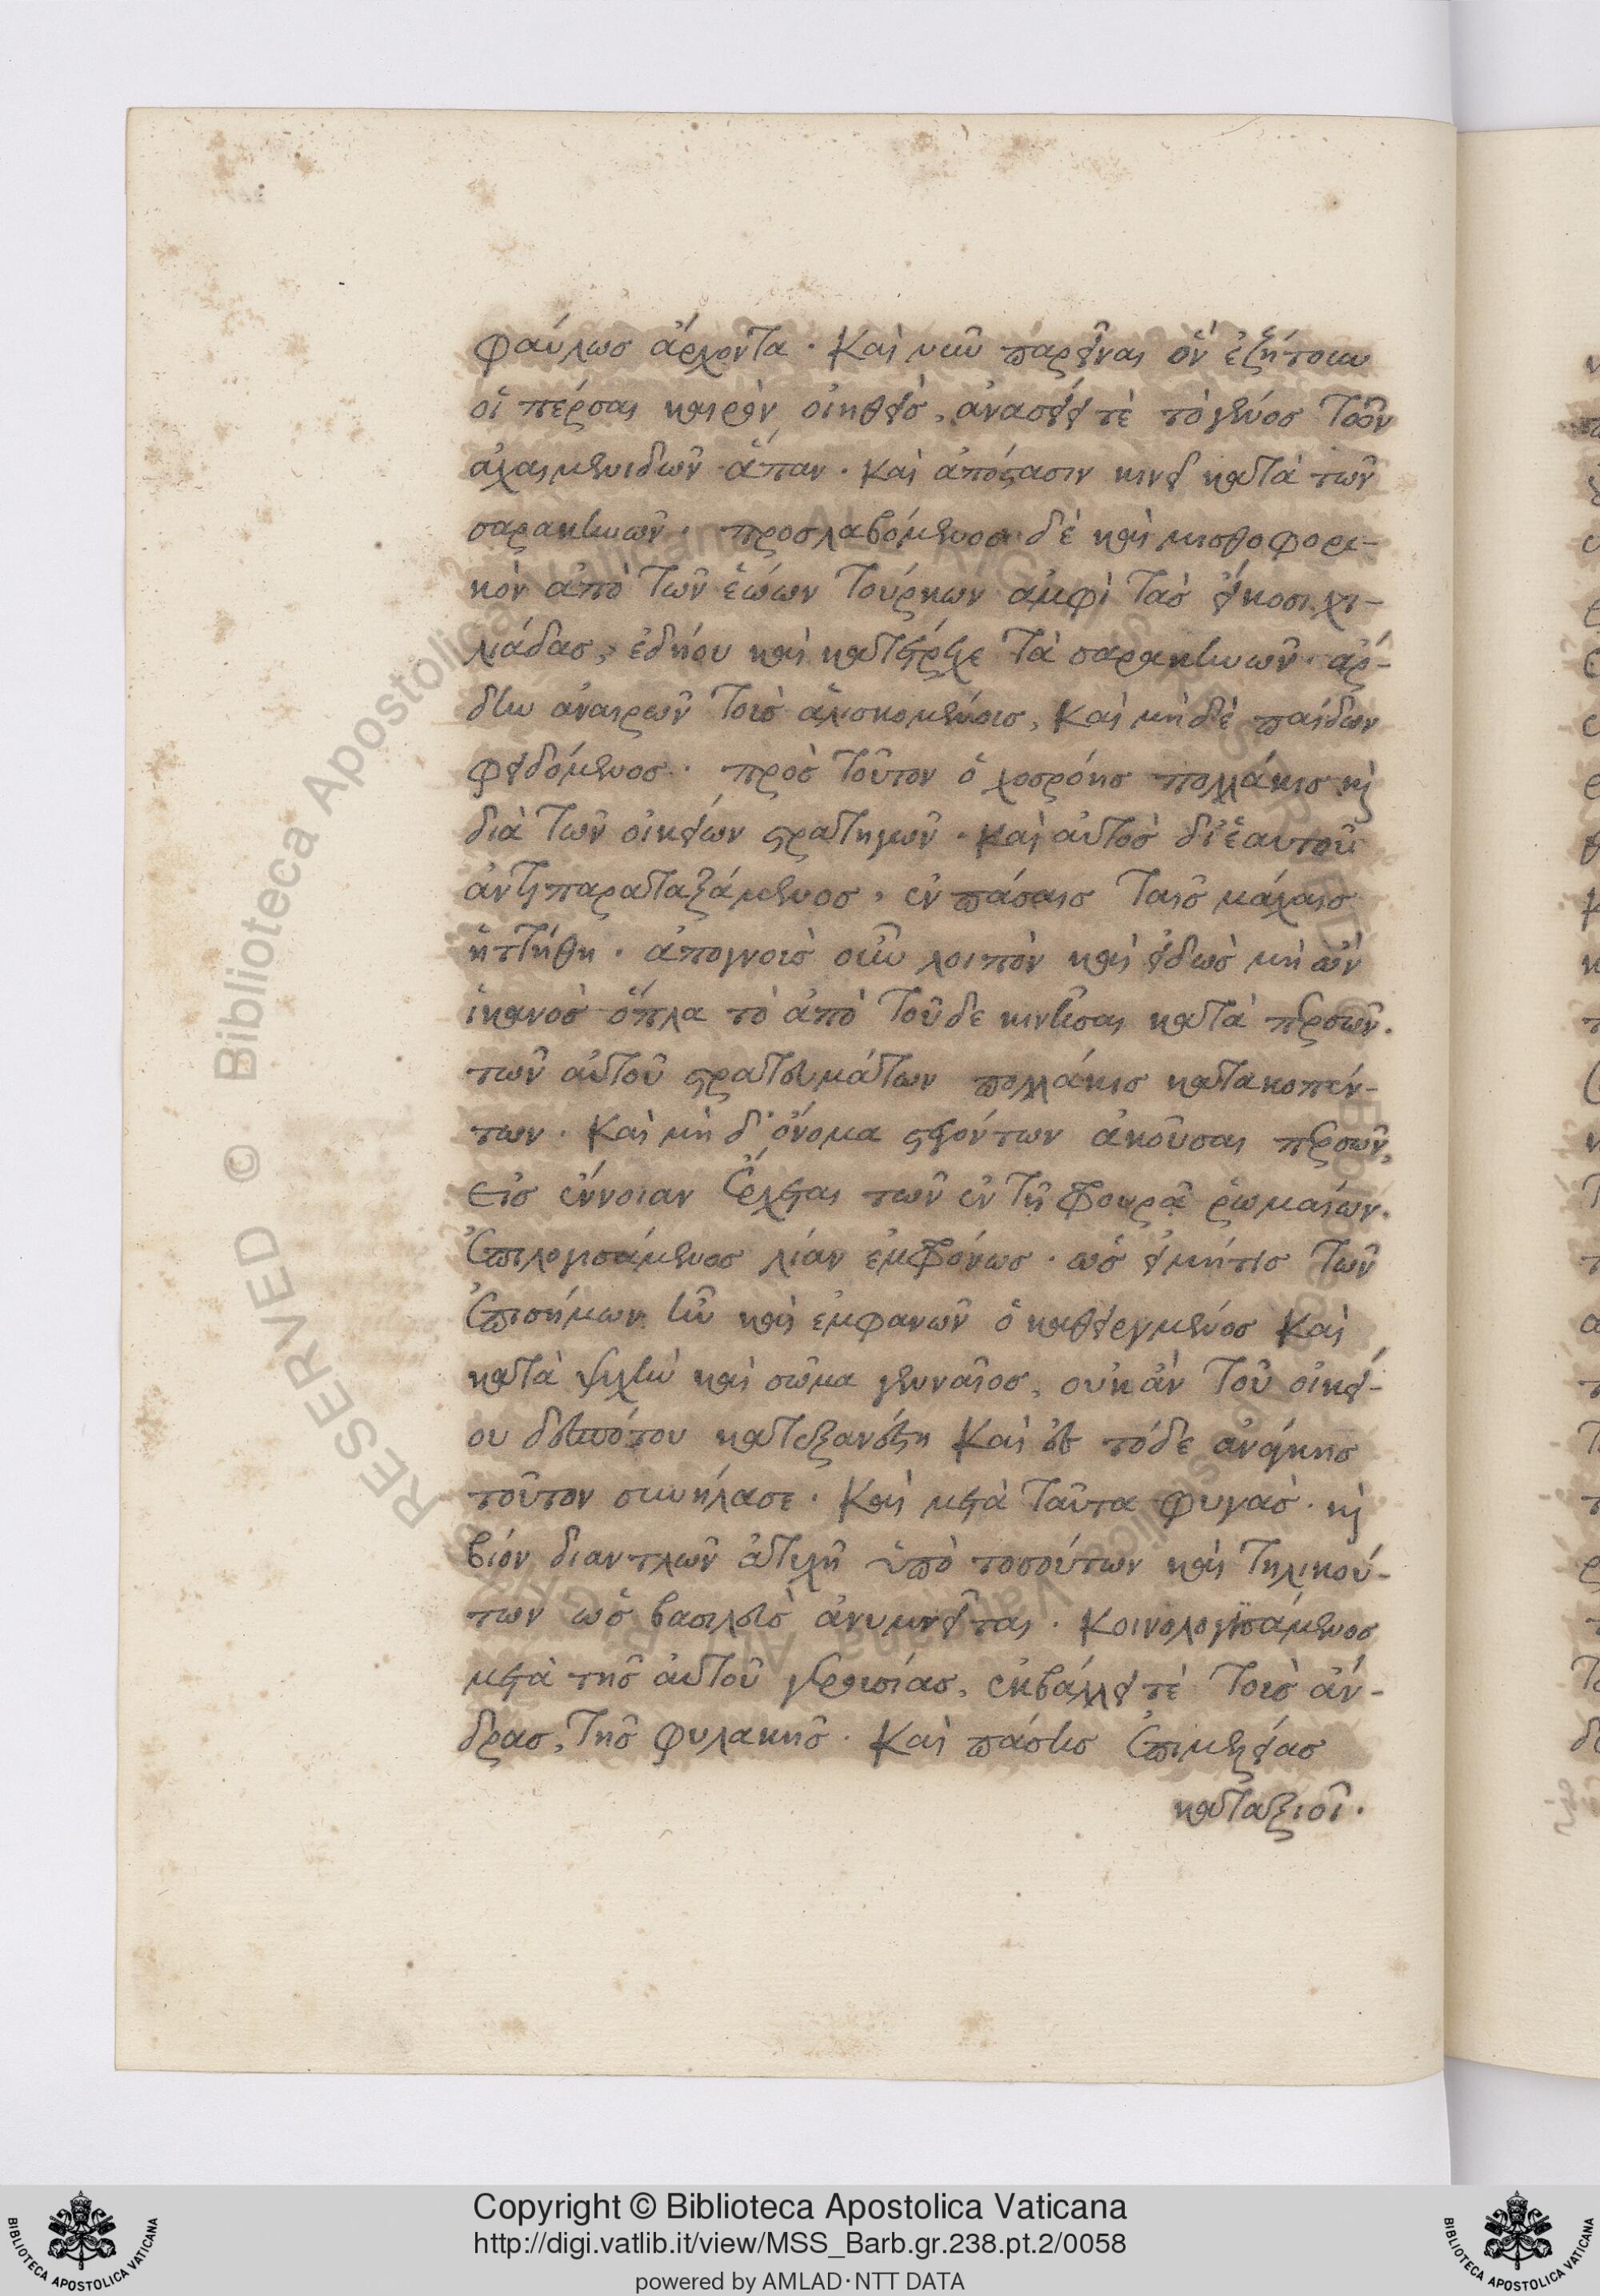 φαύλως ἄρχοντα. Καὶ νῦν παρεῖναι ὃν ἐζήτουν
οἱ πέρσαι καιρὸν οἰηθεὶς, ἀνασείει τὲ τὸ γένος τῶν
ἀχαιμενιδῶν ἅπαν. καὶ ἀπόστασιν κινεῖ κατὰ τῶν
σαρακηνῶν. προσλαβόμενος δὲ καὶ μισθοφορι-
κὸν ἀπὸ τῶν ἑώων τούρκων ἀμφὶ τὰς εἴκοσι χι-
λιάδας, ἐδῄου καὶ κατέτρεχε τὰ σαρακηνῶν. ἄρ-
δην ἀναιρῶν τοὺς ἁλισκομένους, καὶ μὴ δὲ παίδων
φειδόμενος. πρὸς τοῦτον ὁ χοσρόης πολλάκις καὶ
διὰ τῶν οἰκείων στρατηγῶν. καὶ αὐτὸς δι' ἑαυτοῦ
ἀντιπαραταξάμενος, ἐν πάσαις ταῖς μάχαις
ἡττήθη. ἀπογνοὺς οὖν λοιπὸν καὶ εἰδὼς μὴ ὢν
ἱκανὸς ὅπλα τὸ ἀπὸ τοῦδε κινῆσαι κατὰ περσῶν.
τῶν αὐτοῦ στρατευμάτων πολλάκις κατακοπέν-
των. Καὶ μὴ δ' ὄνομα στεγόντων ἀκοῦσαι περσῶν,
εἰς ἔννοιαν ἔρχεται τῶν ἐν τῇ φρουρᾷ ῥωμαίων.
ἐπιλογισάμενος λίαν ἐμφρόνως. ὡς εἰ μήτις τῶν
ἐπισήμων ἦν καὶ ἐμφανῶν ὁ καθειργμένος καὶ
κατὰ ψυχὴν καὶ σῶμα γενναῖος, οὐκ ἂν τοῦ οἰκεί-
ου δεσπότου κατεξανέστη καὶ ἐς τόδε ἀνάγκης
τοῦτον συνήλασε. Καὶ μετὰ ταῦτα φυγὰς. καὶ
βίον διαντλῶν ἀτυχῆ ὑπὸ τοσούτων καὶ τηλικού-
των ὡς βασιλεὺς ἀνυμνεῖται. Κοινολογησάμενος
μετὰ τῆς αὐτοῦ γερουσίας, ἐκβάλλει τὲ τοὺς ἄν-
δρας, τῆς φυλακῆς. Καὶ πάσης ἐπιμελείας
καταξιοῖ.
RESERVED © Biblioteca Apostolica Vaticana ALL RIGHTS RESERVED
Copyright © Biblioteca Apostolica Vaticana
http://digi.vatlib.it/view/MSS_Barb.gr.238.pt.2/0058
powered by AMLAD·NTT DATA
BIBLIOTECA APOSTOLICA VATICANA
BIBLIOTECA APOSTOLICA VATICANA